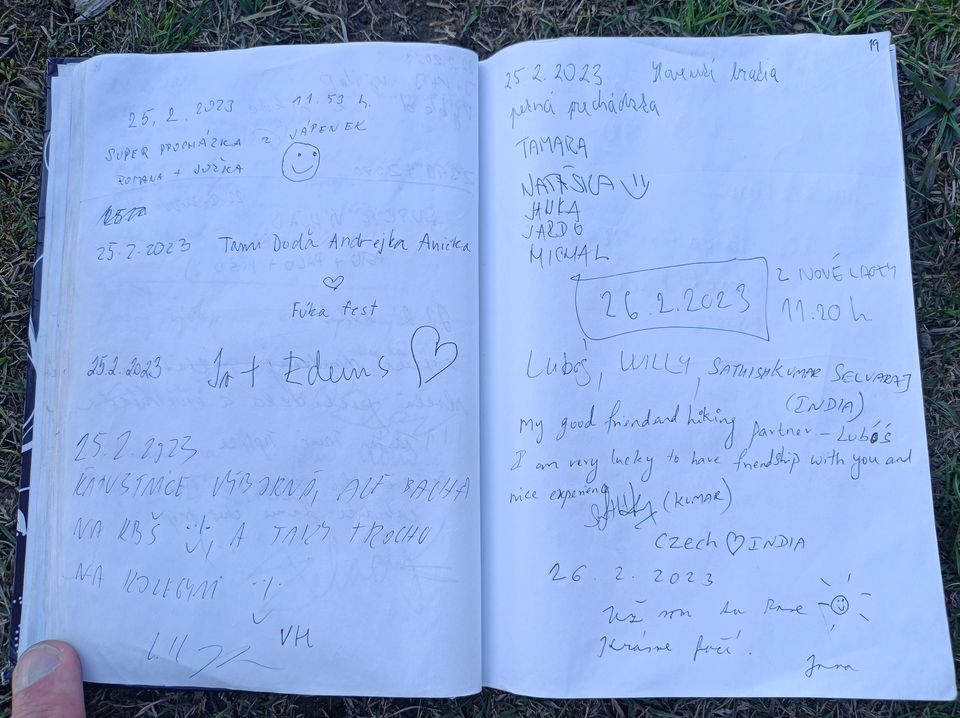 25.2.2023 11.53 h.
SUPER PROCHÁZKA Z VÁPENEK
ROMANA + JUŽKA
25.2.2023 Tami Dodă Andrejka Anička
Fúka fest
25.2.2023
25.2.2023
VÝBORNÁ, ALE BACHA
NA KRŠ A TAKY TROCHU
NA KOLEGYNI
VH
19
25.2.2023 Slovenskí bratia
pekná prechádzka
TAMARA
NATÁŠKA
JARDO
MICHAL
26.2.2023
Z NOVÉ LHOTY
11.20 h
Luboš, WILLY, SATHISHKUMAR SELVARAJ
(INDIA)
my good friend and hiking partner – Luboš
I am very lucky to have friendship with you and
nice experience
(KUMAR)
Czech ♡ INDIA
26.2.2023
Už som tu
Krásne
Jana